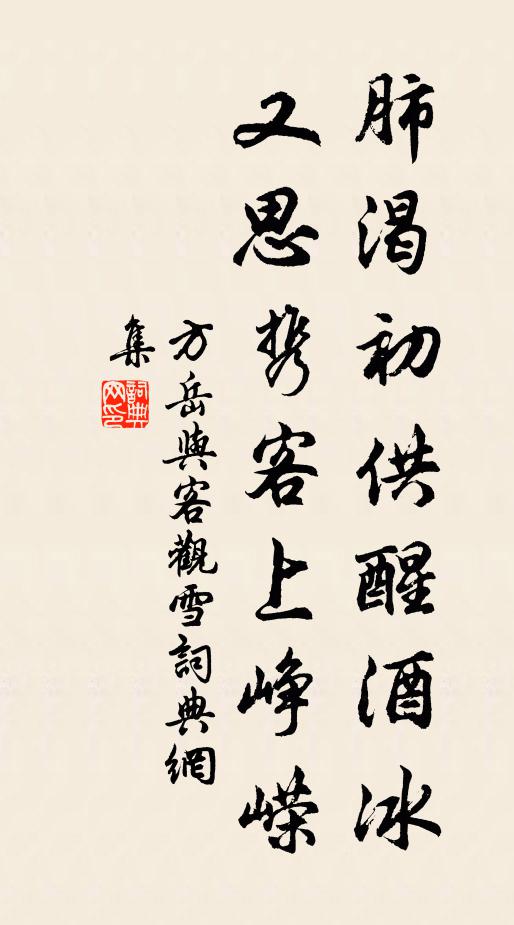 肺渴初供醒酒冰
又思携客上峥嵘
方岳與客觀雪詞典網
集
詞典網印